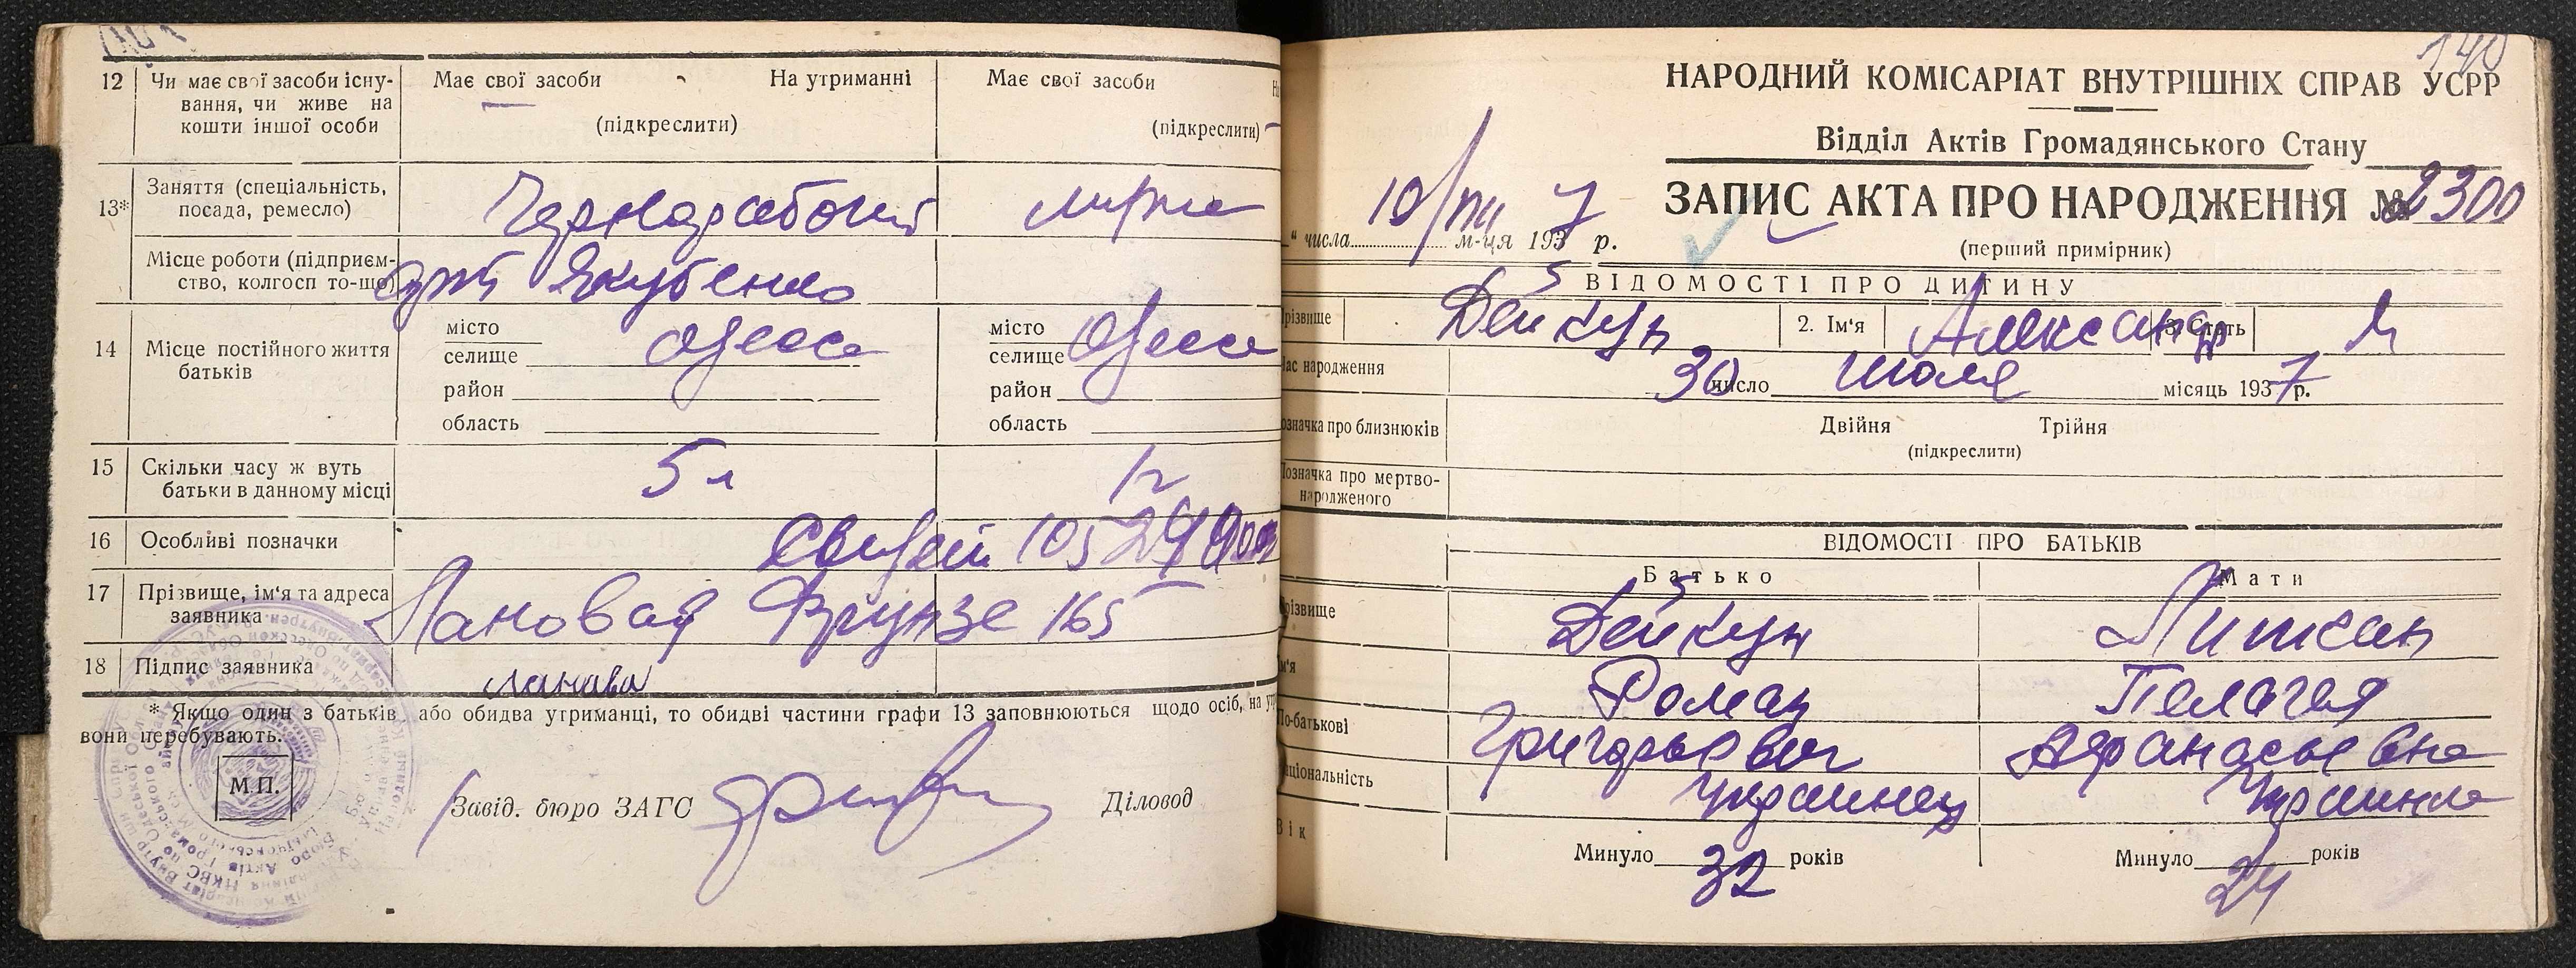 12 Чи має свої засоби існу-
вання, чи живе на
кошти іншої особи
Має свої засоби На утриманні
(підкреслити)
Має свої засоби
(підкреслити)
13* Заняття (спеціальність,
посада, ремесло)
Чернорабочий
Місце роботи (підприєм-
ство, колгосп то-що)
Якубенко
14 Місце постійного життя
батьків
місто
селище Одесса
район
область
місто
селище Одесса
район
область
15 Скільки часу ж вуть
батьки в данному місці
5 л
1 г
16 Особливі позначки
105
17 Прізвище, ім'я та адреса
заявника
Лановая Фрунзе 165
18 Підпис заявника
Ланова
* Якщо один з батьків або обидва утриманці, то обидві частини графи 13 заповнюються щодо осіб, на
вони перебувають.
М.П.
Завід. бюро ЗАГС
Діловод
140
НАРОДНИЙ КОМІСАРІАТ ВНУТРІШНІХ СПРАВ УСРР
Відділ Актів Громадянського Стану
ЗАПИС АКТА ПРО НАРОДЖЕННЯ № 2300
10/VIII 7
" числа м-ця 193 р.
(перший примірник)
ВІДОМОСТІ ПРО ДИТИНУ
різвище Дейкун 2. Ім'я Александр 3. Стать М
ас народження 30 число Июля місяць 1937 р.
означка про близнюків Двійня Трійня
(підкреслити)
Позначка про мертво-
народженого
ВІДОМОСТІ ПРО БАТЬКІВ
Батько Мати
різвище Дейкун Питсан
м'я Роман Пелагея
По-батькові Григорьевич Афанасьевна
аціональність Украинец Украинка
Вік
Минуло 32 років
Минуло 24 років